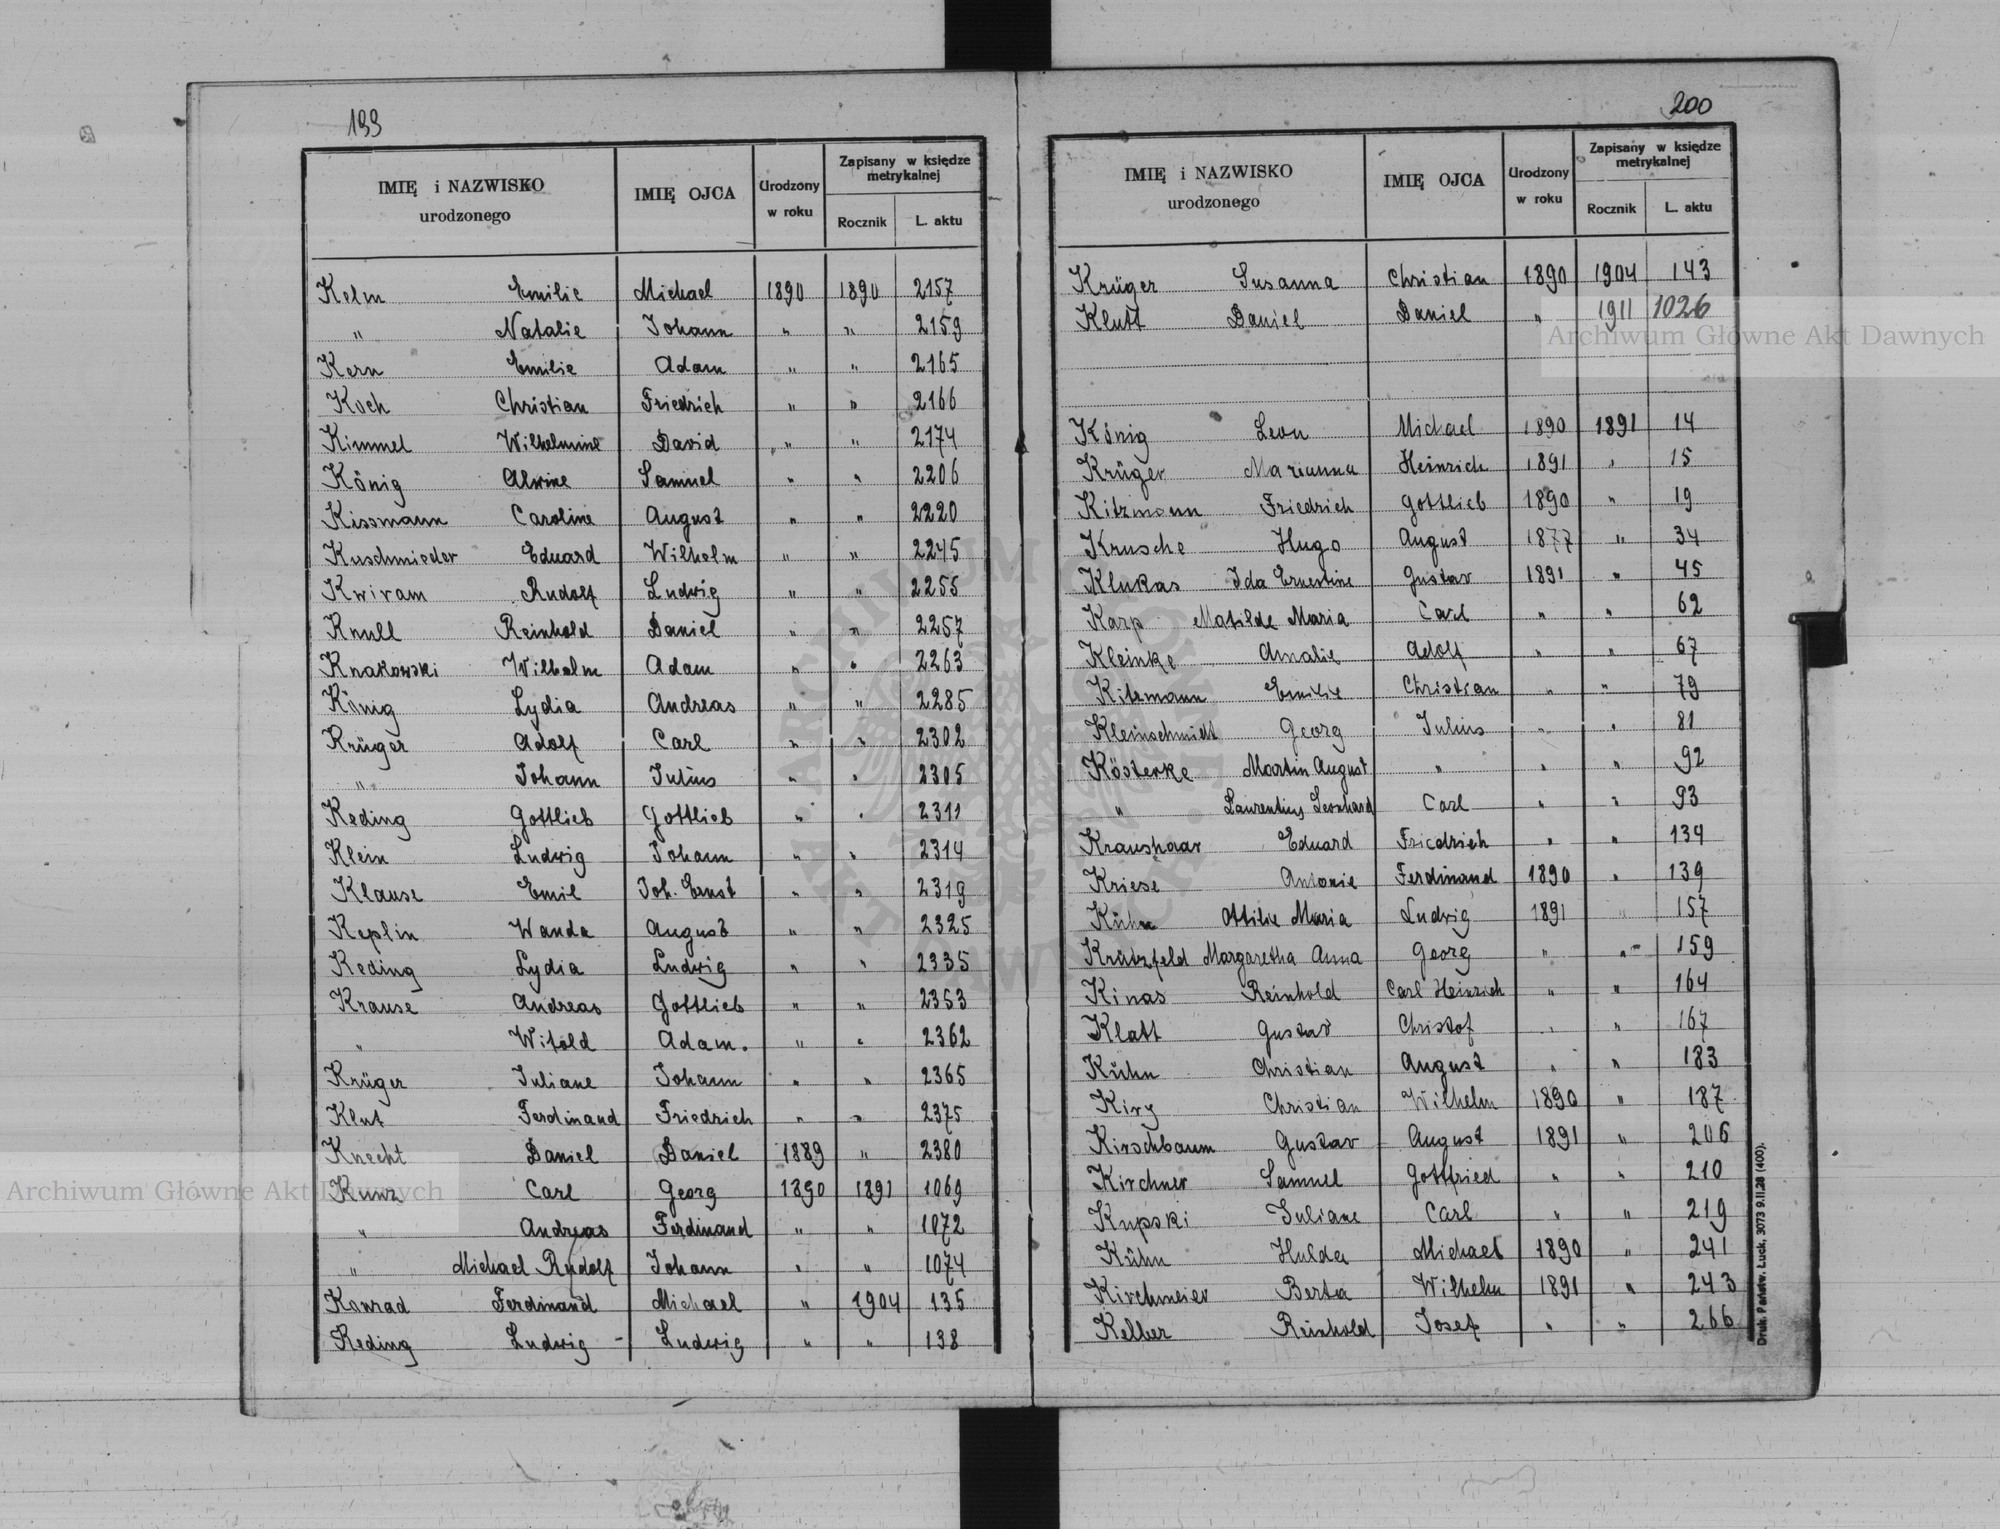 199
IMIĘ i NAZWISKO urodzonego | IMIĘ OJCA | Urodzony w roku | Zapisany w księdze metrykalnej
Rocznik | L. aktu
Kelm Emilie Michael 1890 1890 2157
" Natalie Johann " " 2159
Kern Emilie Adam " " 2165
Koch Christian Friedrich " " 2166
Kimmel Wilhelmine David " " 2174
König Alwine Samuel " " 2206
Kissmann Caroline August " " 2220
Kuschmieder Eduard Wilhelm " " 2245
Kwiram Rudolf Ludwig " " 2255
Knull Reinhold Daniel " " 2257
Knakowski Wilhelm Adam " " 2263
König Lydia Andreas " " 2285
Krüger Adolf Carl " " 2302
" Johann Julius " " 2305
Keding Gottlieb Gottlieb " " 2311
Klein Ludwig Johann " " 2314
Klause Emil Joh. Ernst " " 2319
Keplin Wanda August " " 2325
Keding Lydia Ludwig " " 2335
Krause Andreas Gottlieb " " 2353
" Witold Adam. " " 2362
Krüger Juliane Johann " " 2365
Klut Ferdinand Friedrich " " 2375
Knecht Daniel Daniel 1889 " 2380
Kunz Carl Georg 1890 1891 1069
" Andreas Ferdinand " " 1072
" Michael Rudolf Johann " " 1074
Konrad Ferdinand Michael " 1904 135
Keding Ludwig - Ludwig " " 138
200
IMIĘ i NAZWISKO urodzonego | IMIĘ OJCA | Urodzony w roku | Zapisany w księdze metrykalnej
Rocznik | L. aktu
Krüger Susanna Christian 1890 1904 143
Klutt Daniel Daniel " 1911 1026
König Leon Michael 1890 1891 14
Krüger Marianna Heinrich 1891 " 15
Kitzmann Friedrich Gottlieb 1890 " 19
Krusche Hugo August 1877 " 34
Klukas Ida Ernestine Gustav 1891 " 45
Karp Matilde Maria Carl " " 62
Kleinke Amalie Adolf " " 67
Kitzmann Emilie Christian " " 79
Kleinschmidt Georg Julius " " 81
Kösterke Martin August " " " 92
" Laurentius Leonhard Carl " " 93
Kraushaar Eduard Friedrich " " 134
Kriese Antonie Ferdinand 1890 " 139
Kühn Ottilie Maria Ludwig 1891 " 157
Krützfeld Margaretha Anna Georg " " 159
Kinas Reinhold Carl Heinrich " " 164
Klatt Gustav Christof " " 167
Kühn Christian August " " 183
Kiry Christian Wilhelm 1890 " 187
Kirschbaum Gustav August 1891 " 206
Kirchner Samuel Gottfried " " 210
Kupski Juliane Carl " " 219
Kühn Hulda Michael 1890 " 241
Kirchmeier Berta Wilhelm 1891 " 243
Kelber Reinhold Josef " " 266
Druk. Państw. Łuck, 3073 9.II.28 (400).
Archiwum Główne Akt Dawnych
Archiwum Główne Akt Dawnych